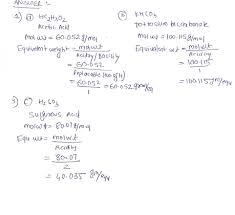 ANSWER :-
1) a) HC2H3O2
Acetic Acid
mol wt = 60.052 g/mol
Equivalent weight = mol wt
Acidity/Basicity
= 60.052
Replacable
= 60.052
1
= 60.052 g/eqv
b) KHCO3
potassium bicarbonate
Mol wt = 100.115 g/mol
Equivalent wt = mol wt
Acidity
= 100.115
1
= 100.115
3) c) H2SO3
Sulfurous Acid
mol wt = 82.07 g/mol
Equ wt = mol wt
Acidity
= 80.07
2
= 40.035 gm/eqv